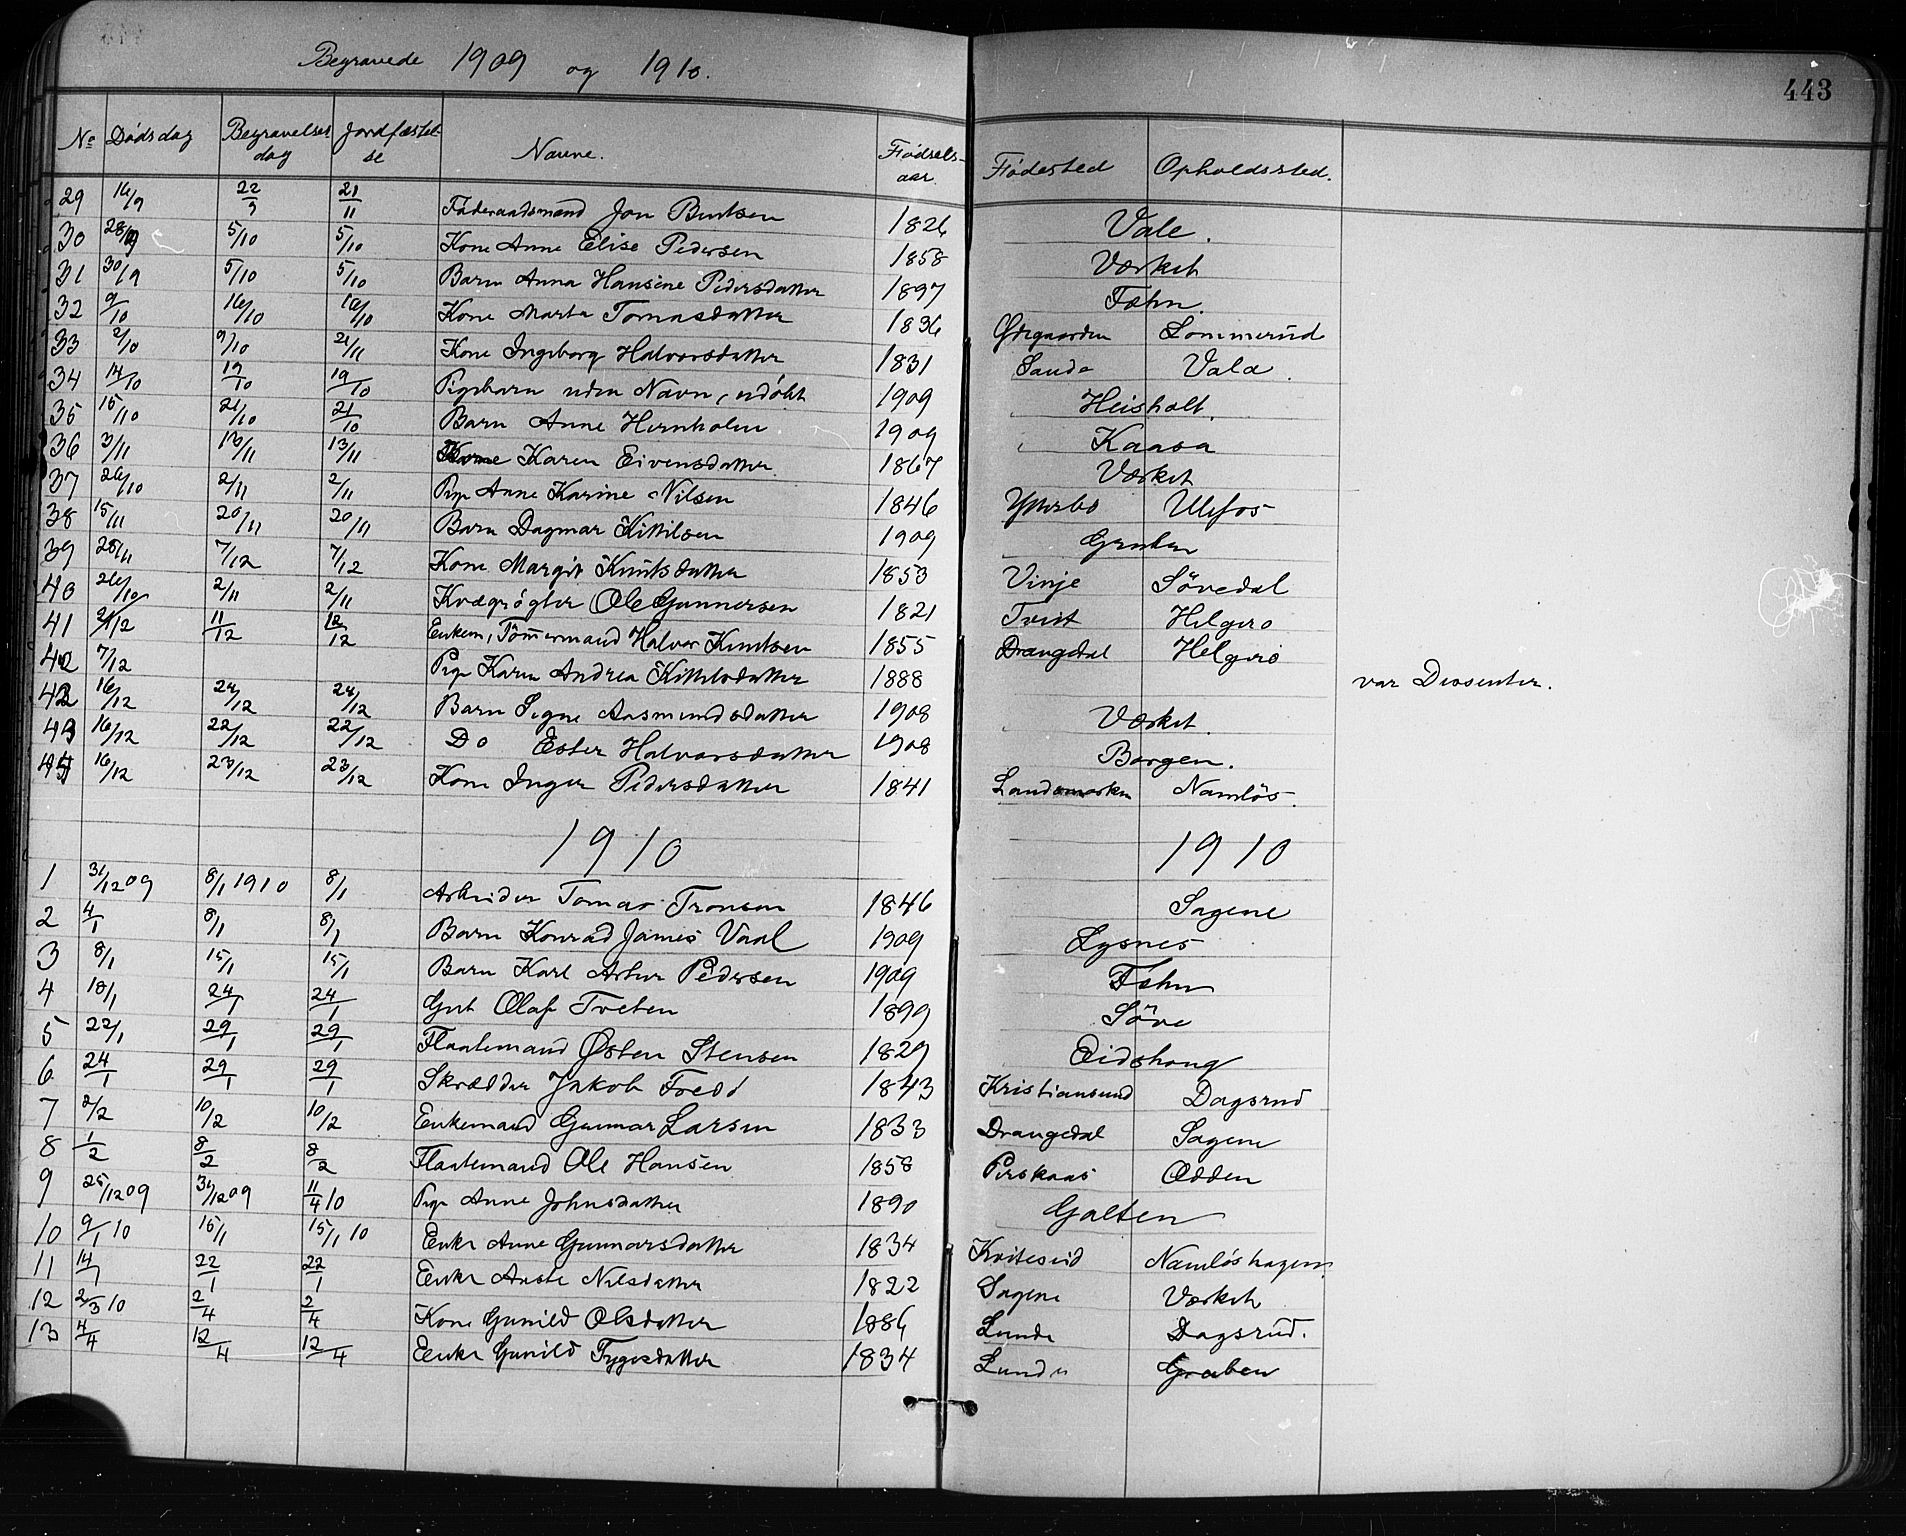 Begravede 1909 og 1910.
443
No Dødsdag Begravelsesdag Jordfæstelse Navne. Fødselsaar. Fødested Opholdssted.
29 16/9 22/9 21/11 Føderaadsmand Jon Buntsen 1826 Vale.
30 28/9 5/10 5/10 Kone Anne Elise Pedersen 1858 Værket
31 30/9 5/10 5/10 Barn Anna Hansine Pedersdatter 1897 Fæhn
32 9/10 16/10 16/10 Kone Marta Tomasdatter 1836 Øegaarden Lommerud
33 2/10 9/10 21/11 Kone Ingeborg Halvorsdatter 1831 Sande Vala.
34 14/10 19/10 19/10 Pigebarn uden Navn, udøbt 1909 Heisholt.
35 15/10 21/10 21/10 Barn Anne Hernholm 1909 Kaasa
36 3/11 13/11 13/11 Kone Karen Eivensdatter 1867 Værket
37 26/10 2/11 2/11 Pige Anne Karine Nilsen 1846 Ytterbø Ulefos
38 15/11 20/11 20/11 Barn Dagmar Kittilsen 1909 Gruben
39 28/11 7/12 7/12 Kone Margit Knutsdatter 1853 Vinje Søvedal
40 26/10 2/11 2/11 Kvægrøgter Ole Gunnersen 1821 Tveit Helgero
41 2/12 11/12 12/12 Enkem, Tømmermand Halvor Knutsen 1855 Drangedal Helgerø
42 7/12 Pige Karen Andrea Kittilsdatter 1888 var Dissenter.
42 16/12 24/12 24/12 Barn Signe Aasmundsdatter 1908 Værket
43 16/12 22/12 22/12 Do Ester Halvorsdatter 1908 Borgen.
44 16/12 23/12 23/12 Kone Inger Pedersdatter 1841 Landsmarken Namløs.
1910 1910
1 31/12 09 8/1 1910 8/1 Arbeider Tomas Tronsen 1846 Sagene
2 4/1 8/1 8/1 Barn Konrad James Vaal 1909 Lysnes
3 8/1 15/1 15/1 Barn Karl Artur Pedersen 1909 Fæhn
4 18/1 24/1 24/1 Gut Olaf Tveten 1899 Søve
5 22/1 29/1 29/1 Flaatemand Østen Stensen 1829 Eidshaug
6 24/1 29/1 29/1 Skrædder Jakob Fredd 1843 Kristiansund Dagsrud
7 2/2 10/2 10/2 Enkemand Gunnar Larsen 1833 Drangedal Sagene
8 1/2 8/2 8/2 Flaatemand Ole Hansen 1858 Perskaas Odden
9 25/12 09 31/12 09 11/4 10 Pige Anne Johnsdatter 1890 Galten
10 9/1 10 15/1 15/1 10 Enke Anne Gunnarsdatter 1834 Kviteseid Namløshagen.
11 14/1 22/1 22/1 Enke Aaste Nilsdatter 1822 Sagene Værket
12 2/3 10 2/4 2/4 Kone Gunild Olsdatter 1886 Lunde Dagsrud.
13 4/4 12/4 12/4 Enke Gunild Tygesdatter 1834 Lunde Gruben